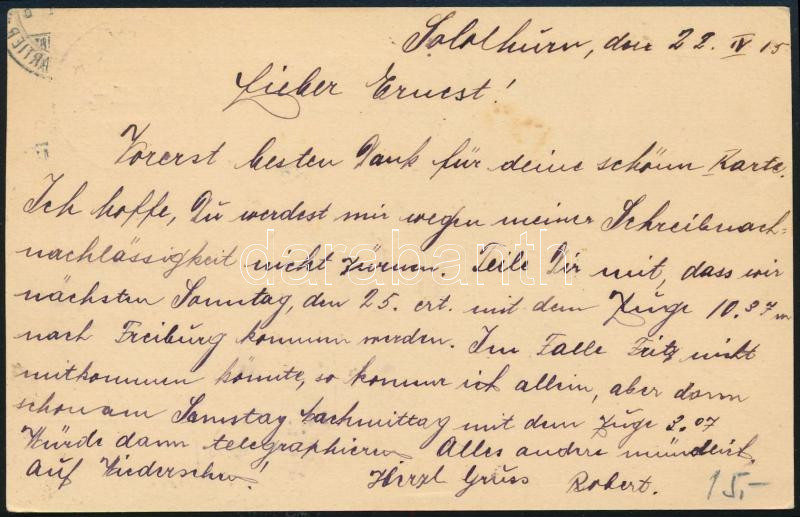 Solothurn, den 22. IV 15
Lieber Ernest!
Vorerst besten Dank für deine schönn Karte.
Ich hoffe, Du werdest mir wegen meiner Schreibnach=
nachlässigkeit nicht zürnen. Teile Dir mit, dass wir
nächsten Sonntag, den 25. crt. mit dem Zuge 10.37
nach Freiburg kommen werden. Im Falle Fritz nicht
mitkommen könnte, so komme ich allein, aber dann
schon am Samstag Nachmittag mit dem Zuge 2.07
Würde dann telegraphieren Alles andere mündlich.
Auf Wiedersehen! Herzl Gruss Robert. 15.-
darabanth